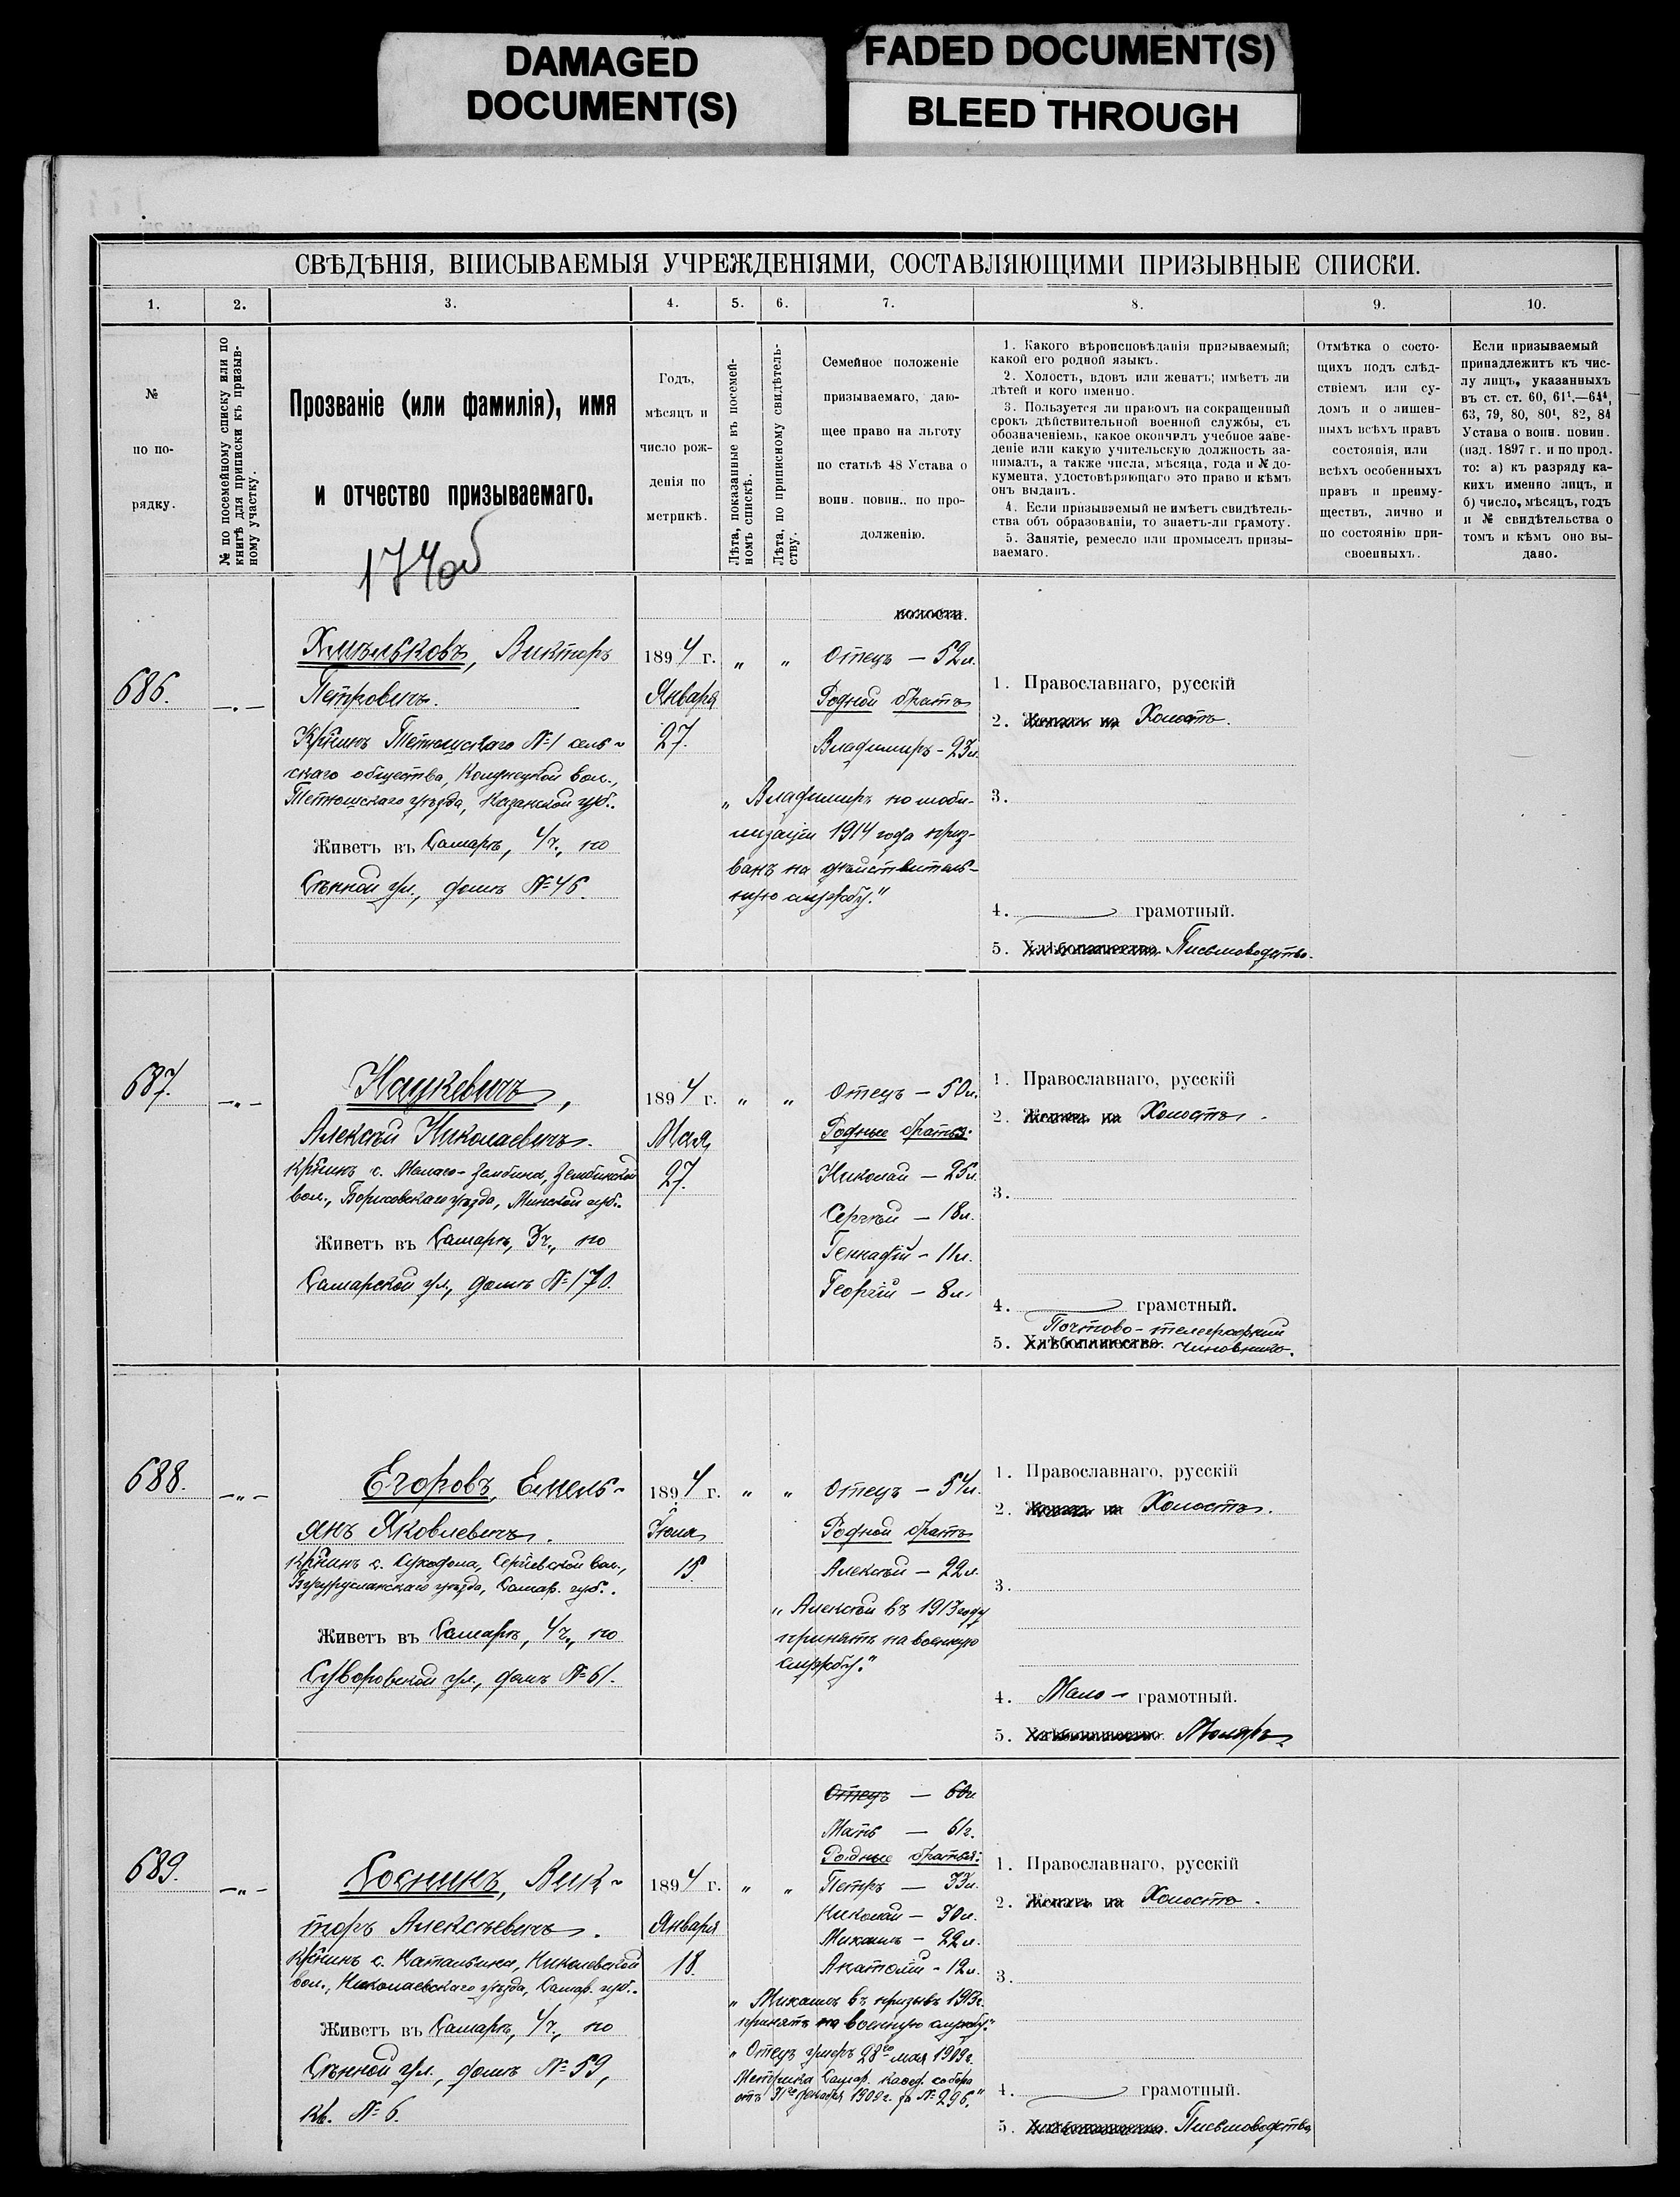 DAMAGED
DOCUMENT(S)
FADED DOCUMENT(S)
BLEED THROUGH
СВѢДѢНІЯ, ВПИСЫВАЕМЫЯ УЧРЕЖДЕНІЯМИ, СОСТАВЛЯЮЩИМИ ПРИЗЫВНЫЕ СПИСКИ.
1. 2. 3. 4. 5. 6. 7. 8. 9. 10.
№
по по-
рядку.
№ по посемейному списку или по
книгѣ для приписки къ призыв-
ному участку.
Прозваніе (или фамилія), имя
и отчество призываемаго.
174об
Годъ,
мѣсяцъ и
число рож-
денія по
метрикѣ.
Лѣта, показанные въ посемей-
номъ спискѣ.
Лѣта, по приписному свидѣтель-
ству.
Семейное положеніе
призываемаго, даю-
щее право на льготу
по статьѣ 48 Устава о
воин. повин., по про-
долженію.
1. Какого вѣроисповѣданія призываемый;
какой его родной языкъ.
2. Холостъ, вдовъ или женатъ; имѣетъ ли
дѣтей и кого именно.
3. Пользуется ли правомъ на сокращенный
срокъ дѣйствительной военной службы, съ
обозначеніемъ, какое окончилъ учебное заве-
деніе или какую учительскую должность за-
нималъ, а также числа, мѣсяца, года и № до-
кумента, удостовѣряющаго это право и кѣмъ
онъ выданъ.
4. Если призываемый не имѣетъ свидѣтель-
ства объ образованіи, то знаетъ-ли грамоту.
5. Занятіе, ремесло или промыселъ призы-
ваемаго.
Отмѣтка о состо-
щихъ подъ слѣд-
ствіемъ или су-
домъ и о лишен-
ныхъ всѣхъ правъ
состоянія, или
всѣхъ особенныхъ
правъ и преиму-
ществъ, лично и
по состоянію при-
своенныхъ.
Если призываемый
принадлежитъ къ чис-
лу лицъ, указанныхъ
въ ст. ст. 60, 61¹.—64⁴,
63, 79, 80, 80¹, 82, 84
Устава о воин. повин.
(изд. 1897 г. и по прод.
то: а) къ разряду ка-
кихъ именно лицъ, и
б) число, мѣсяцъ, годъ
и № свидѣтельства о
томъ и кѣмъ оно вы-
дано.
686.
—„—
Хмѣльковъ, Викторъ
Петровичъ.
Кр̃нинъ Тетюшскаго № 1 сель-
скаго общества, вол.,
Тетюшскаго уѣзда, Казанской губ..
Живетъ въ Самарѣ, 4ч., по
Сѣнной ул., домъ № 46.
1894 г.
Января
27.
„ „
волости.
Отецъ — 52л.
Родной братъ
Владимиръ - 23л.
„Владимиръ по моби-
лизаціи 1914 года приз-
ванъ на дѣйствитель-
ную службу."
1. Православнаго, русскій
2. Женатъ на Холостъ.
3.
4. грамотный.
5. Хлѣбопашество. Письмоводство.
687.
—„—
Нацкевичъ,
Алексѣй Николаевичъ.
Кр̃нинъ с. Малаго-Зембина, Зембинской
вол., Борисовскаго уѣзда, Минской губ..
Живетъ въ Самарѣ, 3ч., по
Самарской ул., домъ № 170.
1894 г.
Мая,
27.
„ „
Отецъ — 50л.
Родные братья:
Николай — 25л.
Сергѣй — 18л.
Геннадій - 11л.
Георгій — 8л.
1. Православнаго, русскій
2. Женатъ на Холостъ.
3.
4. грамотный.
Почтово-телеграфный
5. Хлѣбопашество. чиновникъ.
688.
—„—
Егоровъ, Емель-
янъ Яковлевичъ.
Кр̃нинъ с. Суходола, Сергіевской вол.,
Бугурусланскаго уѣзда, Самар. губ..
Живетъ въ Самарѣ, 4ч., по
Суворовской ул., домъ № 61.
1894 г.
Іюля
15.
„ „
Отецъ — 54л.
Родной братъ
Алексѣй — 22л.
„Алексѣй въ 1913 году
принятъ на военную
службу."
1. Православнаго, русскій
2. Женатъ на Холостъ.
3.
4. Мало- грамотный.
5. Хлѣбопашество. Маляръ.
689.
—„—
Соснинъ, Вик-
торъ Алексѣевичъ.
Кр̃нинъ с. Натальина, Николаевской
вол., Николаевскаго уѣзда, Самар. губ..
Живетъ въ Самарѣ, 4ч., по
Сѣнной ул., домъ № 59,
кв. № 6.
1894 г.
Января
18.
„ „
Отецъ — 60л.
Мать — 61г.
Родные братья:
Петръ — 33л.
Николай — 30л.
Михаилъ — 22л.
Анатолій - 12л.
„Михаилъ въ призывъ 1913г.
принятъ на военную службу."
„Отецъ умеръ 28го мая 1909г.
Метрика Самар. каѳед. собора
отъ 31го декабря 1909г. за № 296."
1. Православнаго, русскій
2. Женатъ на Холостъ.
3.
4. грамотный.
5. Хлѣбопашество. Письмоводство.